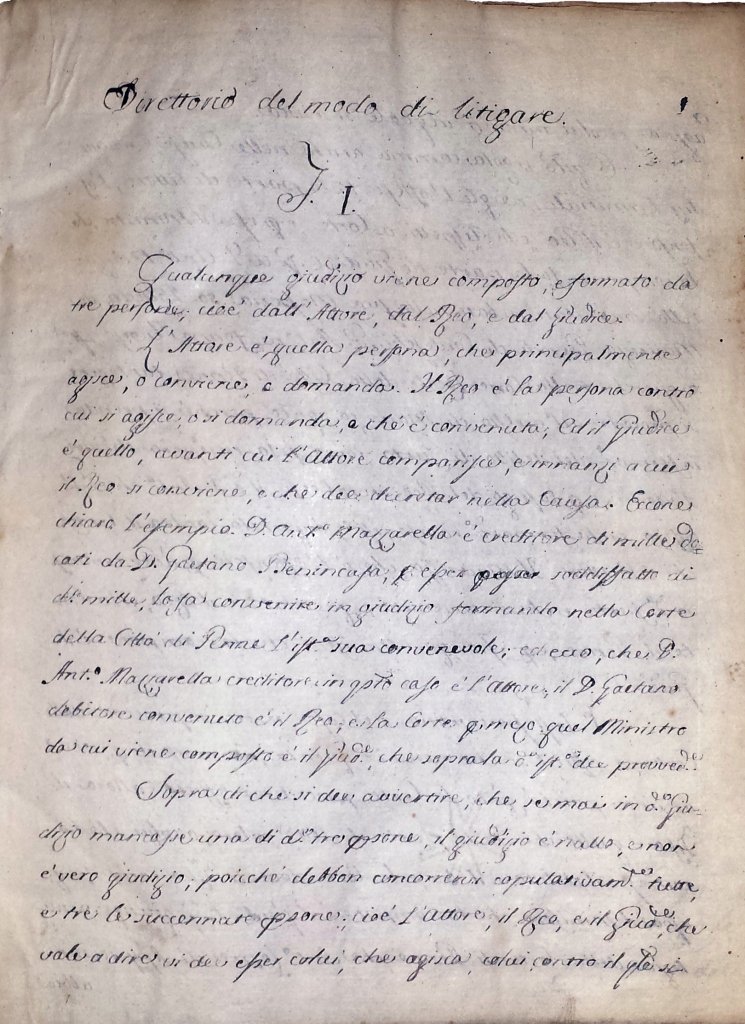 Direttorio del modo di litigare.
1
§. I.
Qualunque giudizio viene composto, e formato da
tre persone; cioè dall'Attore, dal Reo, e dal Giudice.
L'Attore è quella persona, che principalmente
agisce, o conviene, e domanda. Il Reo è la persona contro
cui si agisce, o si domanda, e ché è convenuta; Ed il Giudice
è quello, avanti cui l'Attore comparisce, e innanzi a cui
il Reo si conviene, e che dee decretar nella Causa. Eccone
chiaro l'esempio. D. Ant.o Mazzarella è creditore di mille do=
cati da D. Gaetano Benincasa; E esser soddisfatto di
d.i mille, lo fa convenire in giudizio formando nella Corte
della Città di Penne l'ist.a sua convenevole; ed ecco, che D.
Ant.o Mazzarella creditore in qsto caso è l'Attore; il D. Gaetano
debitore convenuto è il Reo; e la Corte p mezo quel Ministro
da cui viene composto è il Giud.e, che sopra la d.a ist.a dee provved.e
Sopra di che si dee avvertire, che se mai in d.o Giu-
dizio mancasse una di d.e tre psone, il giudizio è nullo, e non
è vero giudizio; poicché debbon concorrervi copulativam.te tutte,
e tre le succennate psone; cioè l'Attore, il Reo, e il Giud.e, che
vale a dire vi dee esser colui, che agisca, colui contro il qle si